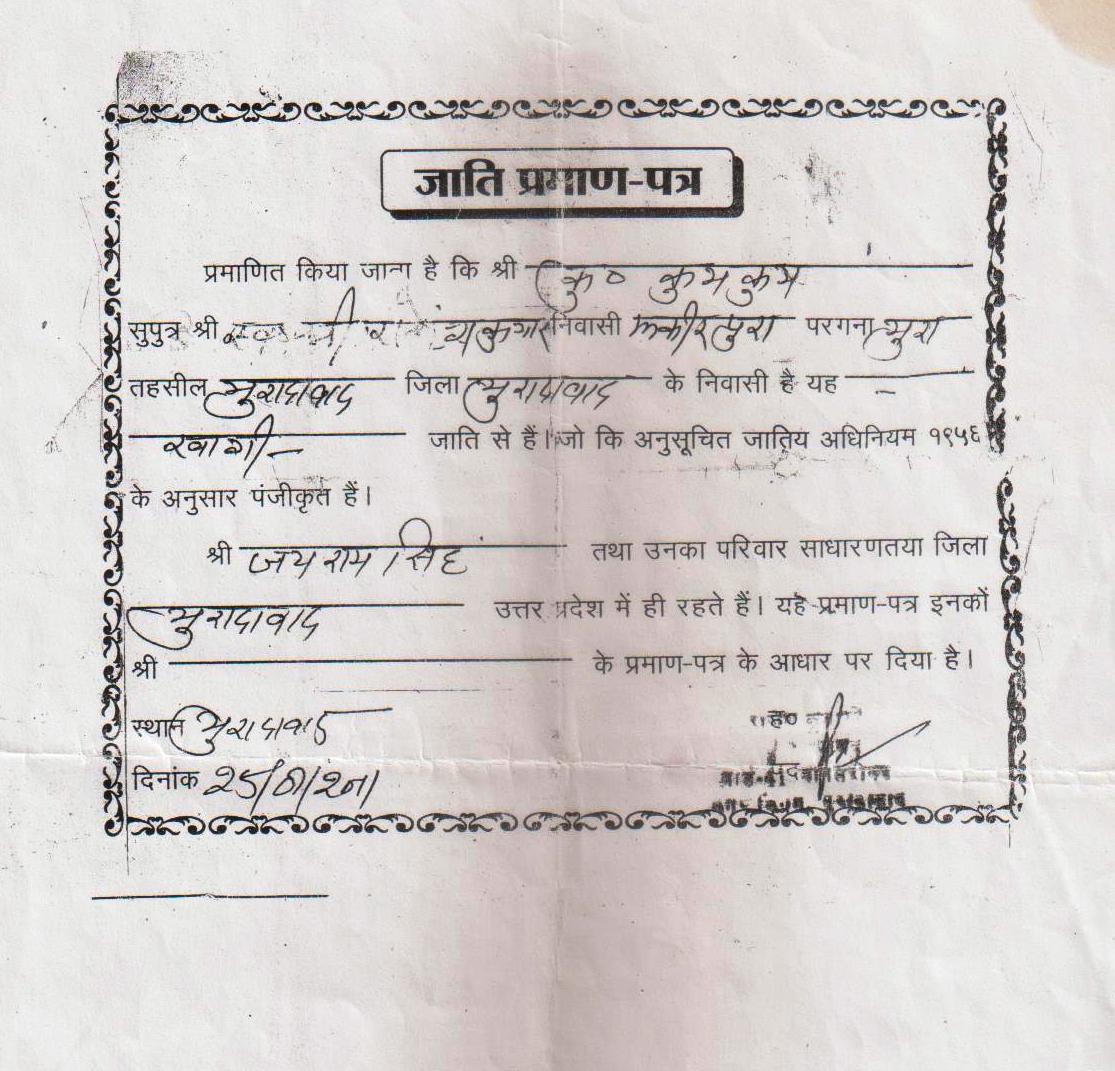 जाति प्रमाण-पत्र
प्रमाणित किया जाता है कि श्री कु० कुमकुम
सुपुत्र श्री निवासी फकीरपुरा परगना मुरा
तहसील मुरादाबाद जिला मुरादाबाद के निवासी है यह —
जाति से हैं। जो कि अनुसूचित जातिय अधिनियम १९५६
के अनुसार पंजीकृत हैं।
श्री जयराम सिंह तथा उनका परिवार साधारणतया जिला
मुरादाबाद उत्तर प्रदेश में ही रहते हैं। यह प्रमाण-पत्र इनकों
श्री के प्रमाण-पत्र के आधार पर दिया है।
स्थान मुरादाबाद
दिनांक